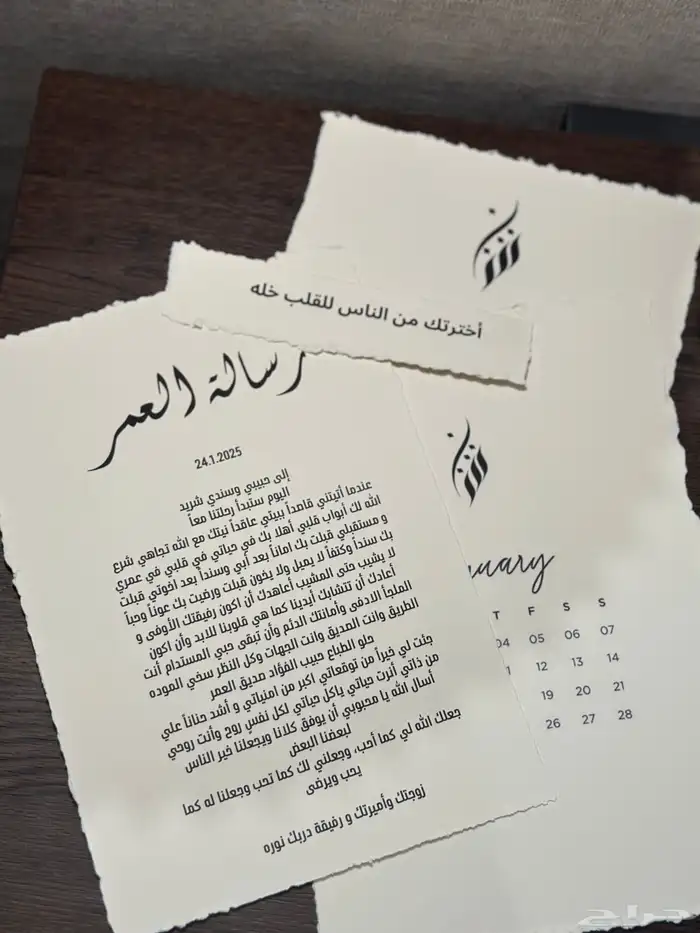 أخترتك من الناس للقلب خله
رسالة العمر
24.1.2025
إلى حبيبي وسندي شريد
اليوم ستبدأ رحلتنا معاً
عندما أتيتني قاصداً بيتي عاقداً نيتك مع الله تجاهي شرع
الله لك أبواب قلبي أهلا بك في حياتي في قلبي في عمري
و مستقبلي قبلت بك اماناً بعد أبي وسنداً بعد اخوتي قبلت
بك سنداً وكتفاً لا يميل ولا يخون قبلت ورضيت بك عوناً وحباً
لا يشيب حتى المشيب أعاهدك أن اكون رفيقتك الأوفى و
أعادك أن تتشابك أيدينا كما هي قلوبنا للابد وأن اكون
الملجأ الادفى وأمانتك الدئم وأن تبقى حبي المستدام أنت
الطريق وانت الصديق وانت الجهات وكل النظر سخي الموده
حلو الطباع حبيب الفؤاد صديق العمر
جئت لي خيراً من توقعاتي اكبر من امنياتي و أشد حناناً علي
من ذاتي أنرت حياتي ياكل حياتي لكل نفسٍ روح وأنت روحي
أسال الله يا محبوبي أن يوفق كلانا ويجعلنا خير الناس
لبعضنا البعض
جعلك الله لي كما أحب، وجعلني لك كما تحب وجعلنا له كما
يحب ويرضى
زوجتك وأميرتك و رفيقة دربك نوره
uary
T F S S
04 05 06 07
12 13 14
19 20 21
26 27 28
حراج